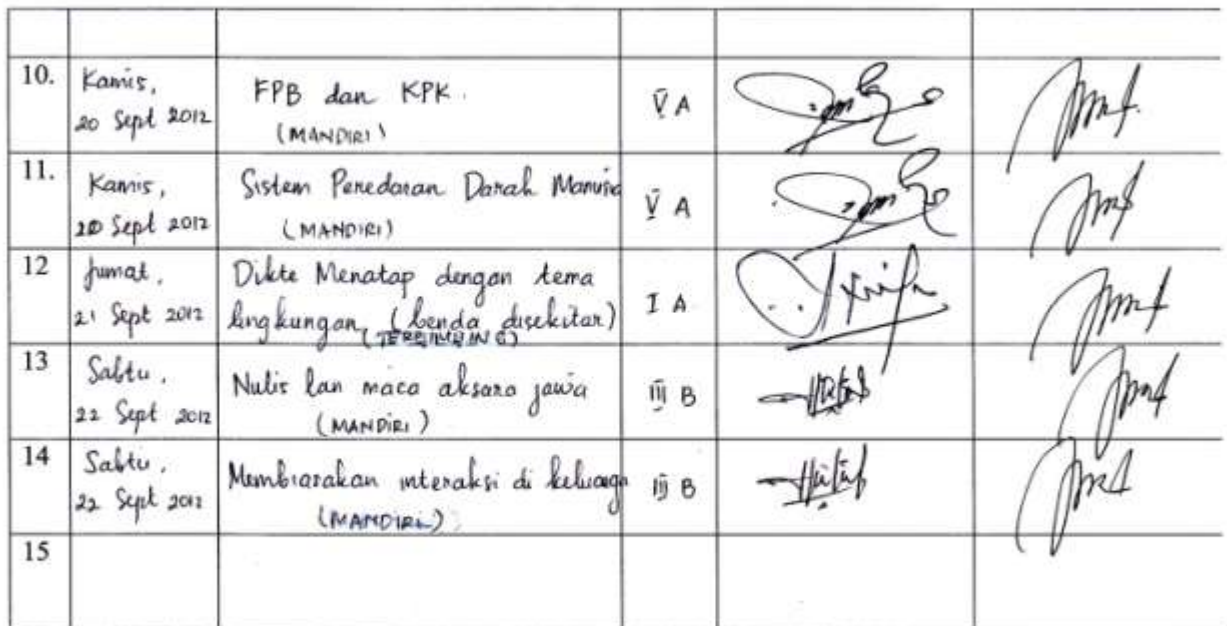 10.
Kamis,
20 Sept 2012
FPB dan KPK.
(MANDIRI)
V A
11.
Kamis,
20 Sept 2012
Sistem Peredaran Darah Manusia
(MANDIRI)
V A
12
Jumat,
21 Sept 2012
Dikte Menatap dengan tema
lingkungan (benda disekitar)
(TERBIMBING)
I A
13
Sabtu,
22 Sept 2012
Nulis lan maca aksara jawa
(MANDIRI)
III B
14
Sabtu,
22 Sept 2012
Membiasakan interaksi di keluarga
(MANDIRI)
III B
15